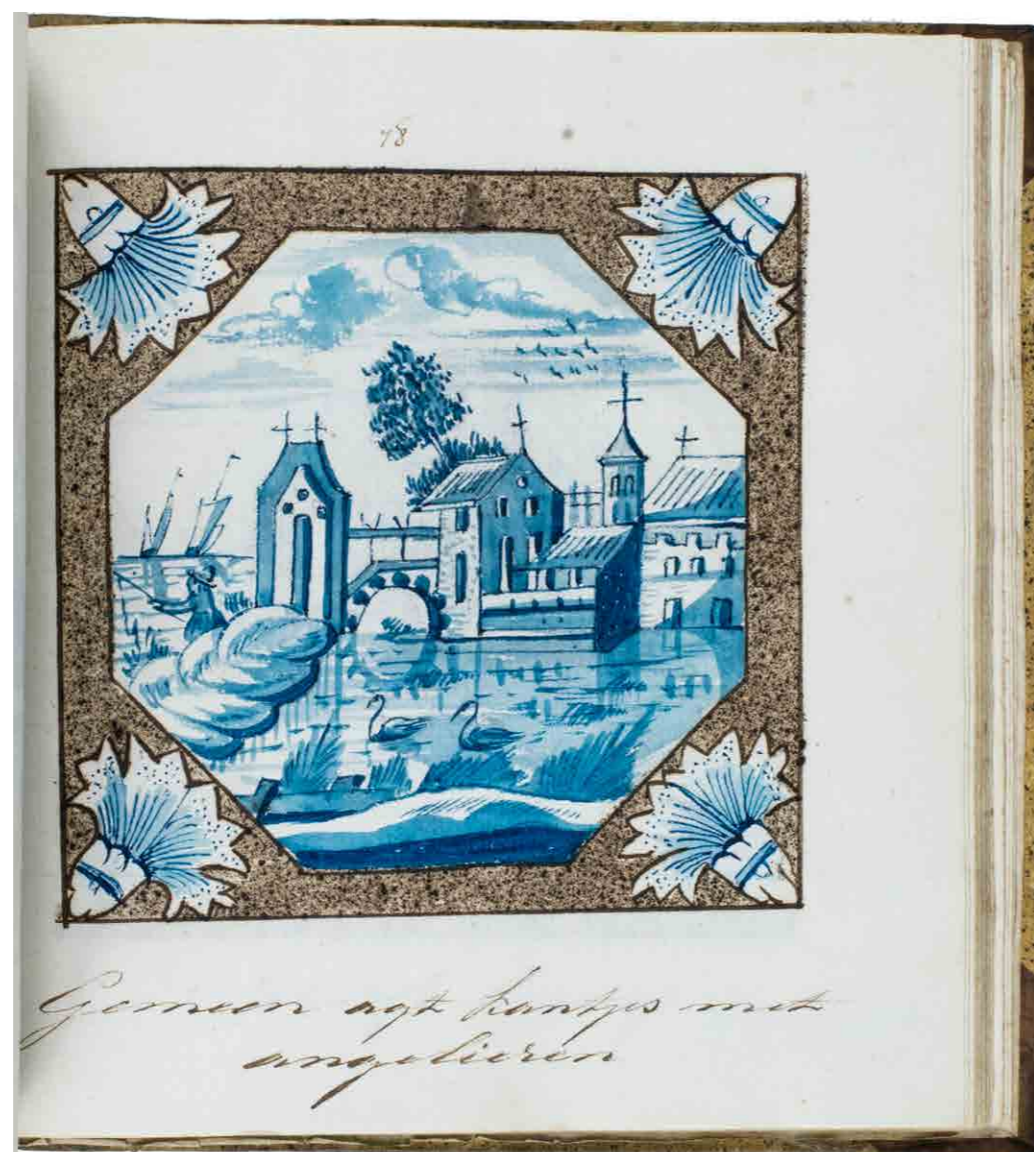 78
Gemeen agt kantjes met
angelieren